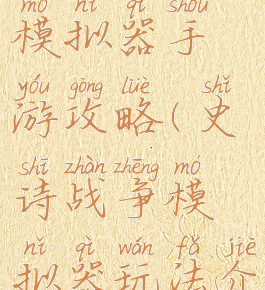 mó nǐ qì shǒu
模拟器手
yóu gōng lüè shǐ
游攻略(史
shī zhàn zhēng mó
诗战争模
nǐ qì wán fǎ jiè
拟器玩法介